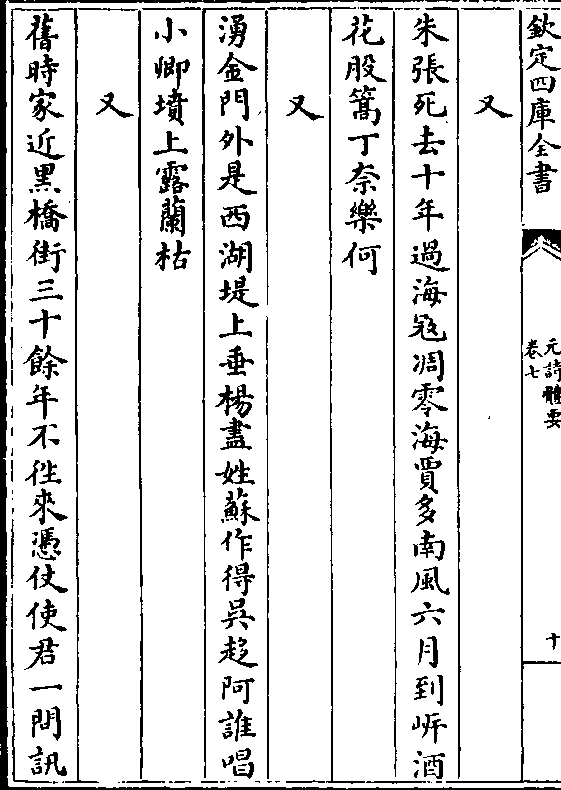 欽定四庫全書
元詩體要
卷七
十
又
朱張死去十年過海冦凋零海賈多南風六月到㟁酒
花股篙丁奈樂何
又
湧金門外是西湖堤上垂楊盡姓蘇作得吳趍阿誰唱
小卿墳上露蘭枯
又
舊時家近黑橋街三十餘年不徃來憑仗使君一問訊